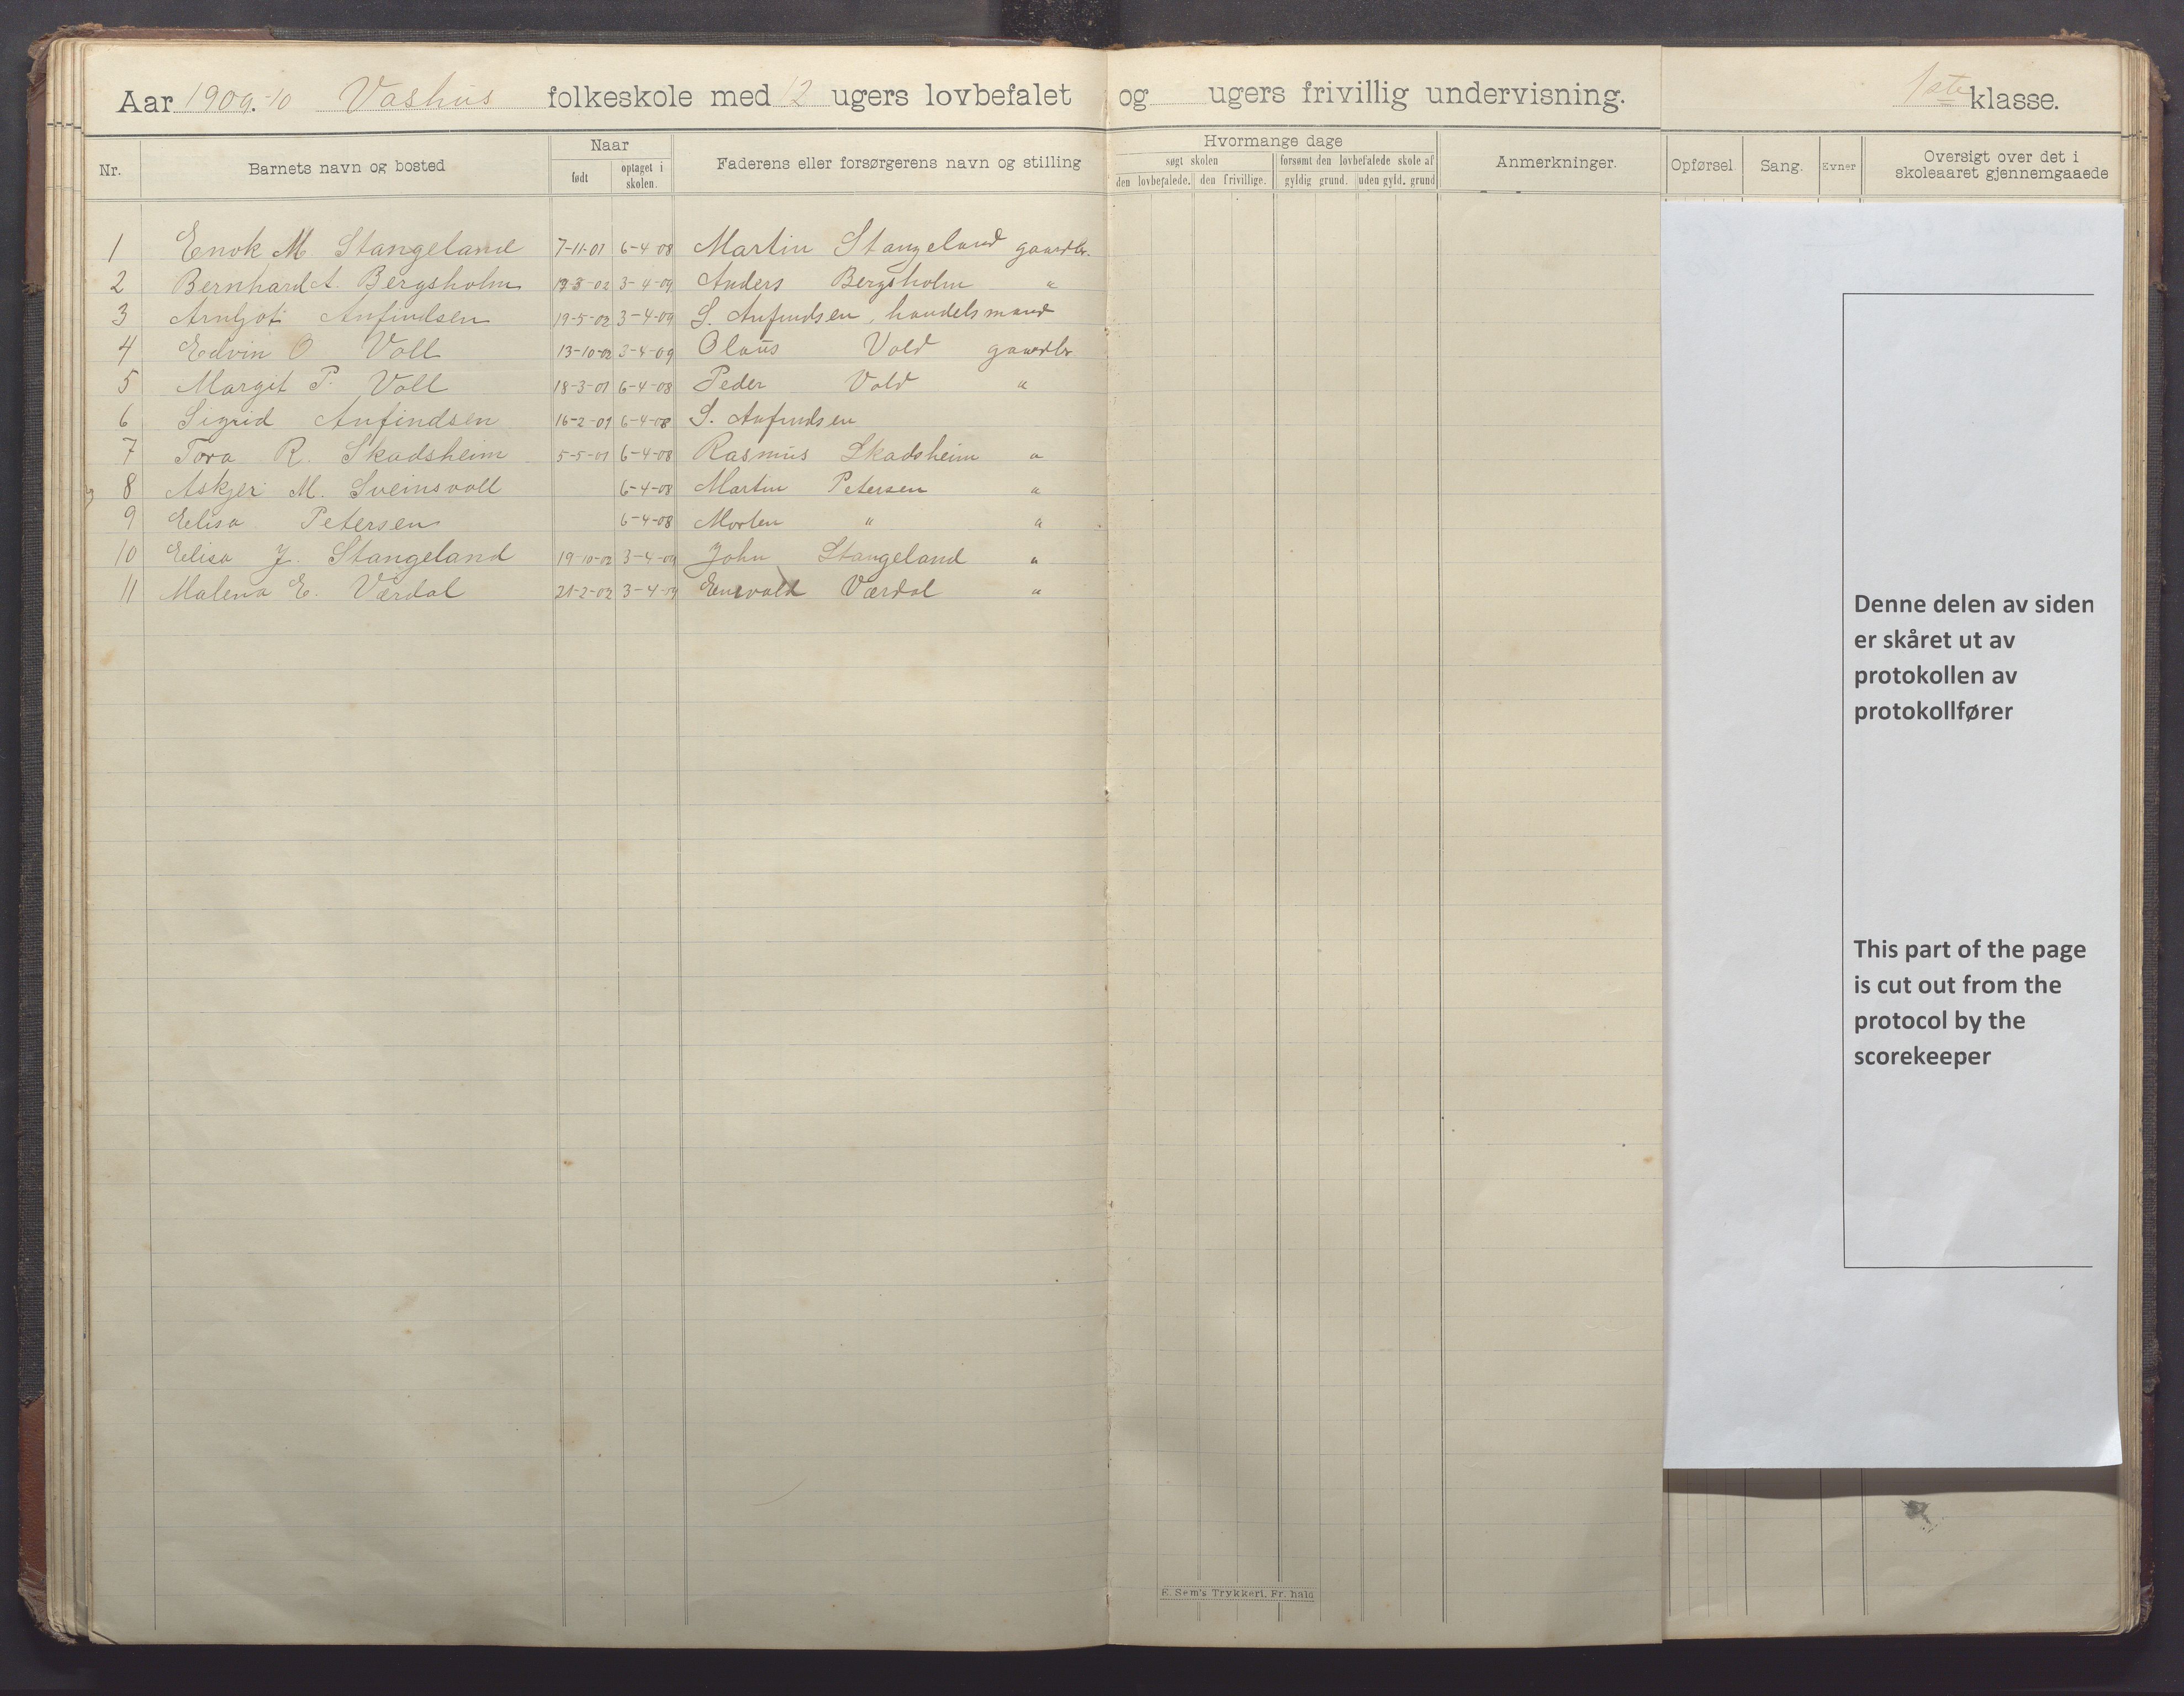 Aar 1909-10 Vashus folkeskole med 12 ugers lovbefalet og ugers frivillig undervisning. 1ste klasse.
Nr. Barnets navn og bosted Naar født optaget i skolen. Faderens eller forsørgerens navn og stilling Hvormange dage søgt skolen den lovbefalede. den frivillige. forsømt den lovbefalede skole af gyldig grund. uden gyld. grund Anmerkninger. Opførsel Sang. Evner Oversigt over det i skoleaaret gjennemgaaede
1 Enok M. Stangeland 7-11-01 6-4-08 Martin Stangeland gaardbr.
2 Bernhard A. Bergsholm 3-02 3-4-09 Anders Bergsholm "
3 Arnljot Anfindsen 19-5-02 3-4-09 S. Anfindsen, handelsmand
4 Edvin O Voll 13-10-02 3-4-09 Olaus Vold gaardbr
5 Margit P. Voll 18-3-01 6-4-08 Peder Vold "
6 Sigrid Anfindsen 16-2-01 6-4-08 S. Anfindsen
7 Tora R. Skadsheim 5-5-01 6-4-08 Rasmus Skadsheim "
8 Askjer M. Sveinsvoll 6-4-08 Martin Petersen "
9 Elisa Petersen 6-4-08 Morten " "
10 Elisa J. Stangeland 19-10-02 3-4-09 John Stangeland "
11 Malena E. Værdal 21-2-02 3-4-09 Enevald Værdal "
Denne delen av siden
er skåret ut av
protokollen av
protokollfører
This part of the page
is cut out from the
protocol by the
scorekeeper
E. Sem's Trykkeri, Fr.hald